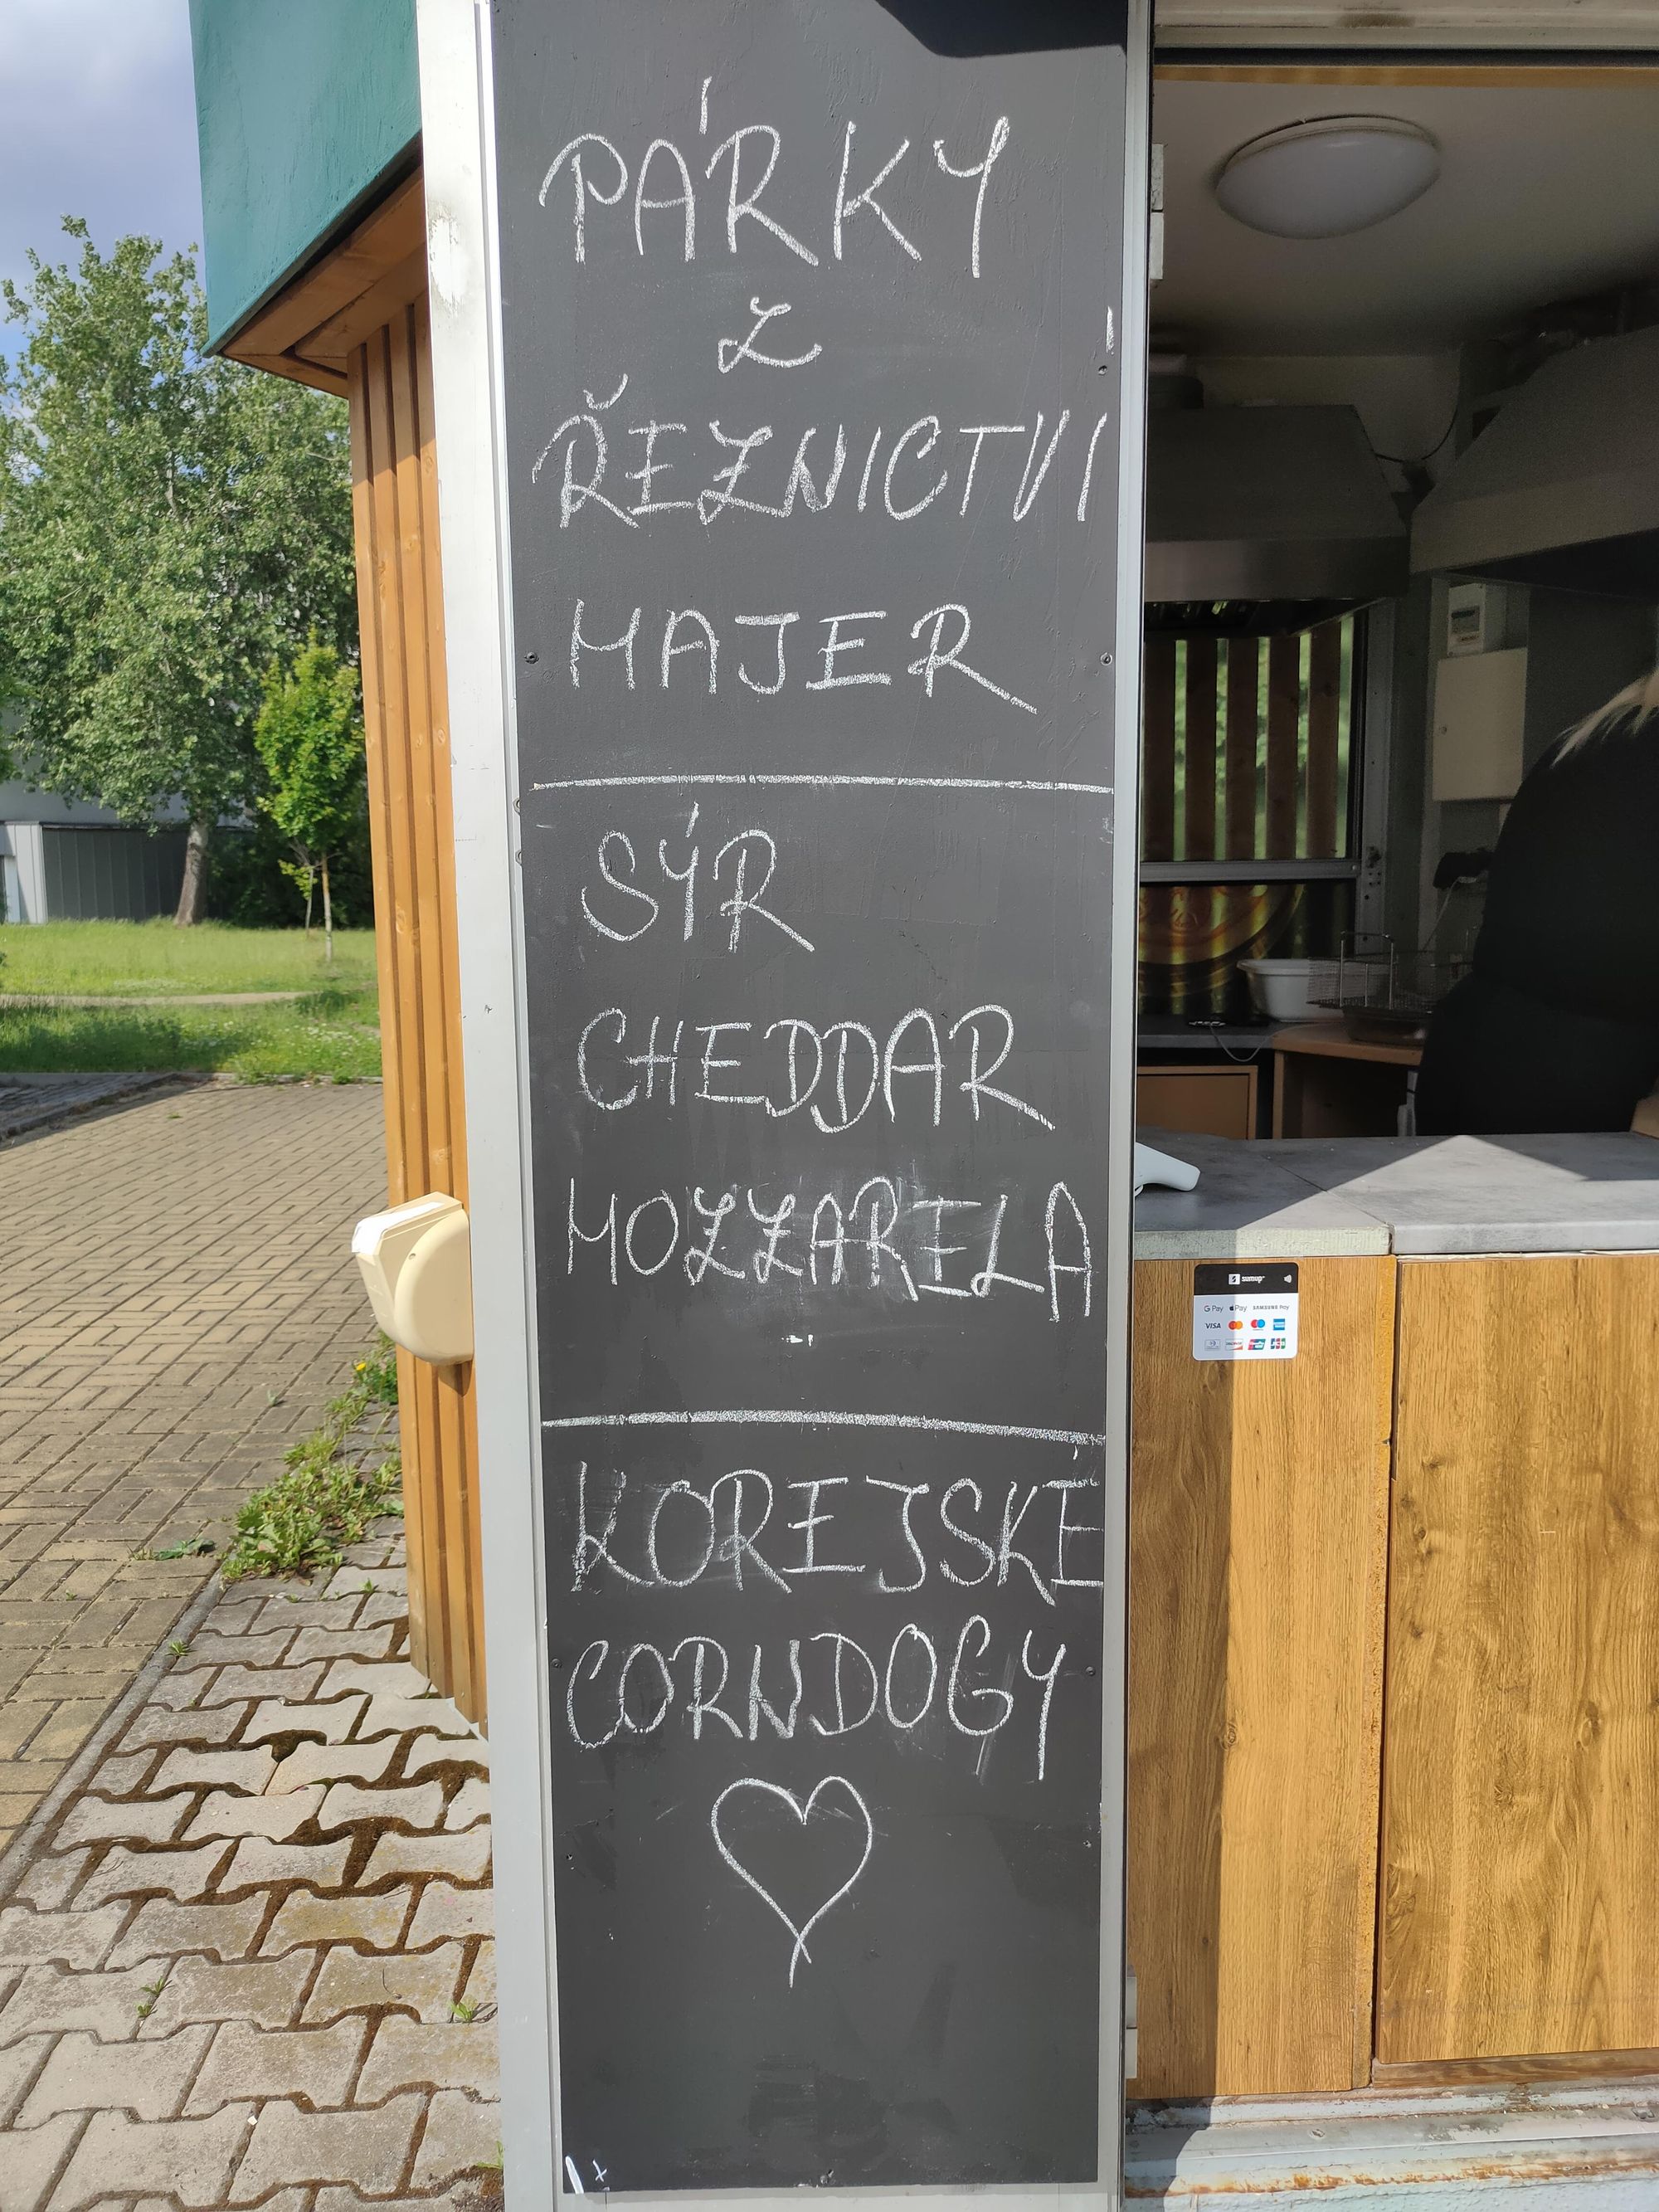 PÁRKY
Z
ŘEZNICTVÍ
MAJER
SÝR
CHEDDAR
MOZZARELA
KOREJSKÉ
CORNDOGY
sumup
G Pay Pay SAMSUNG Pay
VISA